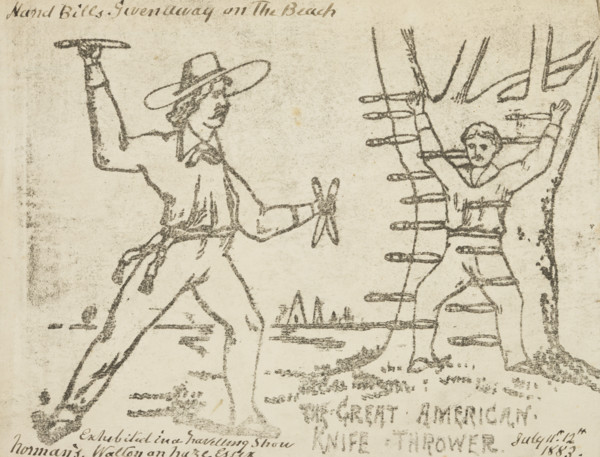 Hand Bills Given away on The Beach
THE GREAT AMERICAN
KNIFE THROWER.
Exhibited in a travelling Show
Norman's, Walton on Naze Essex
July 11th 12th
1883.